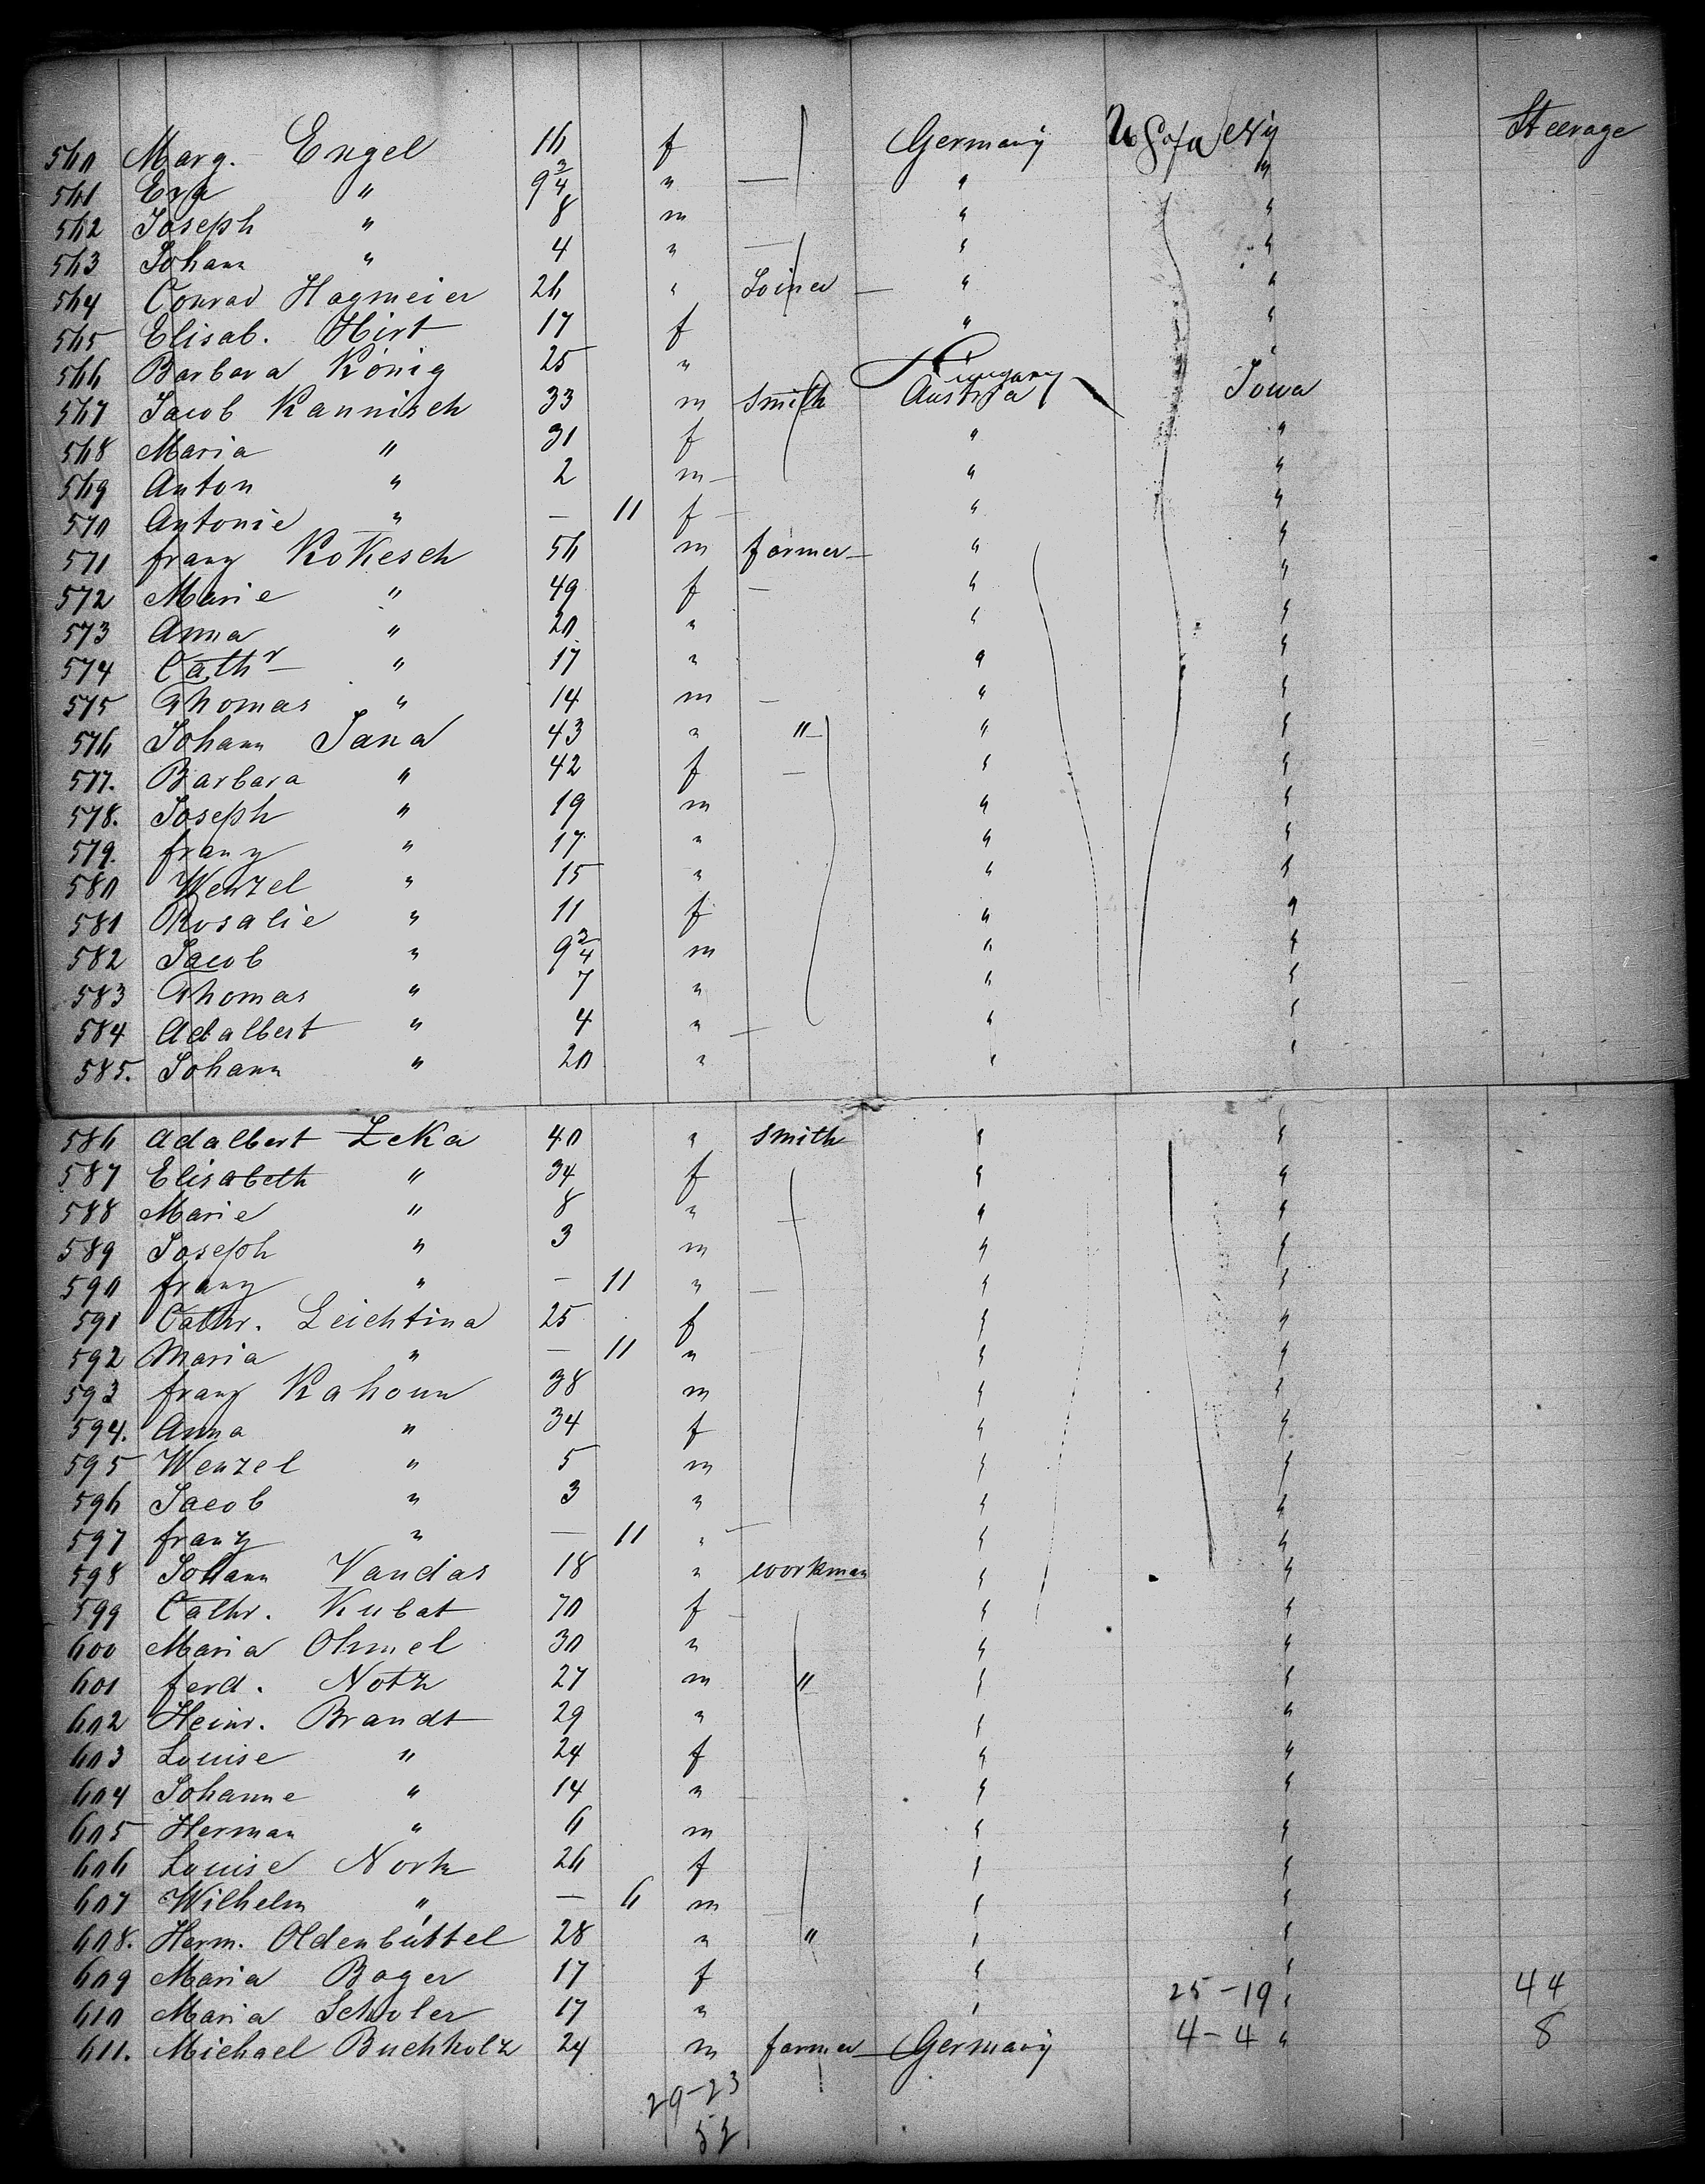 560 Marg. Engel 16 f Germany U S of a NY Steerage
561 Eva " 9 3/4 " — " "
562 Joseph " 8 m " "
563 Johann " 4 " — " "
564 Conrad Hagmeier 26 " Joiner — " "
565 Elisab. Hirt 17 f " "
566 Barbara König 25 " Hungary "
567 Jacob Kannisch 33 m Smith Austria Iowa
568 Maria " 31 f " "
569 Anton " 2 m — " "
570 Antonie " — 11 f — " "
571 franz Kokesch 56 m farmer — " "
572 Marie " 49 f — " "
573 Anna " 20 " " "
574 Cathr " 17 " " "
575 Thomas " 14 m — " "
576 Johann Jana 43 " " — " "
577. Barbara " 42 f — " "
578. Joseph " 19 m " "
579. franz " 17 " " "
580 Wenzel " 15 " " "
581 Rosalie " 11 f " "
582 Jacob " 9 3/4 m " "
583 Thomas " 7 " " "
584 Adalbert " 4 " — " "
585. Johann " 20 " " "
586 Adalbert Zeka 40 " Smith " "
587 Elisabeth " 34 f " "
588 Marie " 8 " — " "
589 Joseph " 3 m " "
590 franz " — 11 " — " "
591 Cathr. Leichtina 25 f " "
592 Maria " — 11 " — " "
593 franz Kahoun 38 m " "
594. Anna " 34 f " "
595 Wenzel " 5 m " "
596 Jacob " 3 " " "
597 franz " — 11 " — " "
598 Johann Vandas 18 " workman " "
599 Cathr. Kubat 70 f — " "
600 Maria Ohmel 30 " " "
601 ferd. Notz 27 m " " "
602 Heinr. Brandt 29 " " "
603 Louise " 24 f " "
604 Johanne " 14 " — " "
605 Herman " 6 m " "
606 Louise Nork 26 f " "
607 Wilhelm " — 6 m — " "
608. Herm. Oldenbüttel 28 " " " "
609 Maria Bager 17 f " "
610 Maria Schuler 17 " " 25-19 " 44
611. Michael Buchholz 24 m farmer — Germany 4-4 " 8
29-23
52